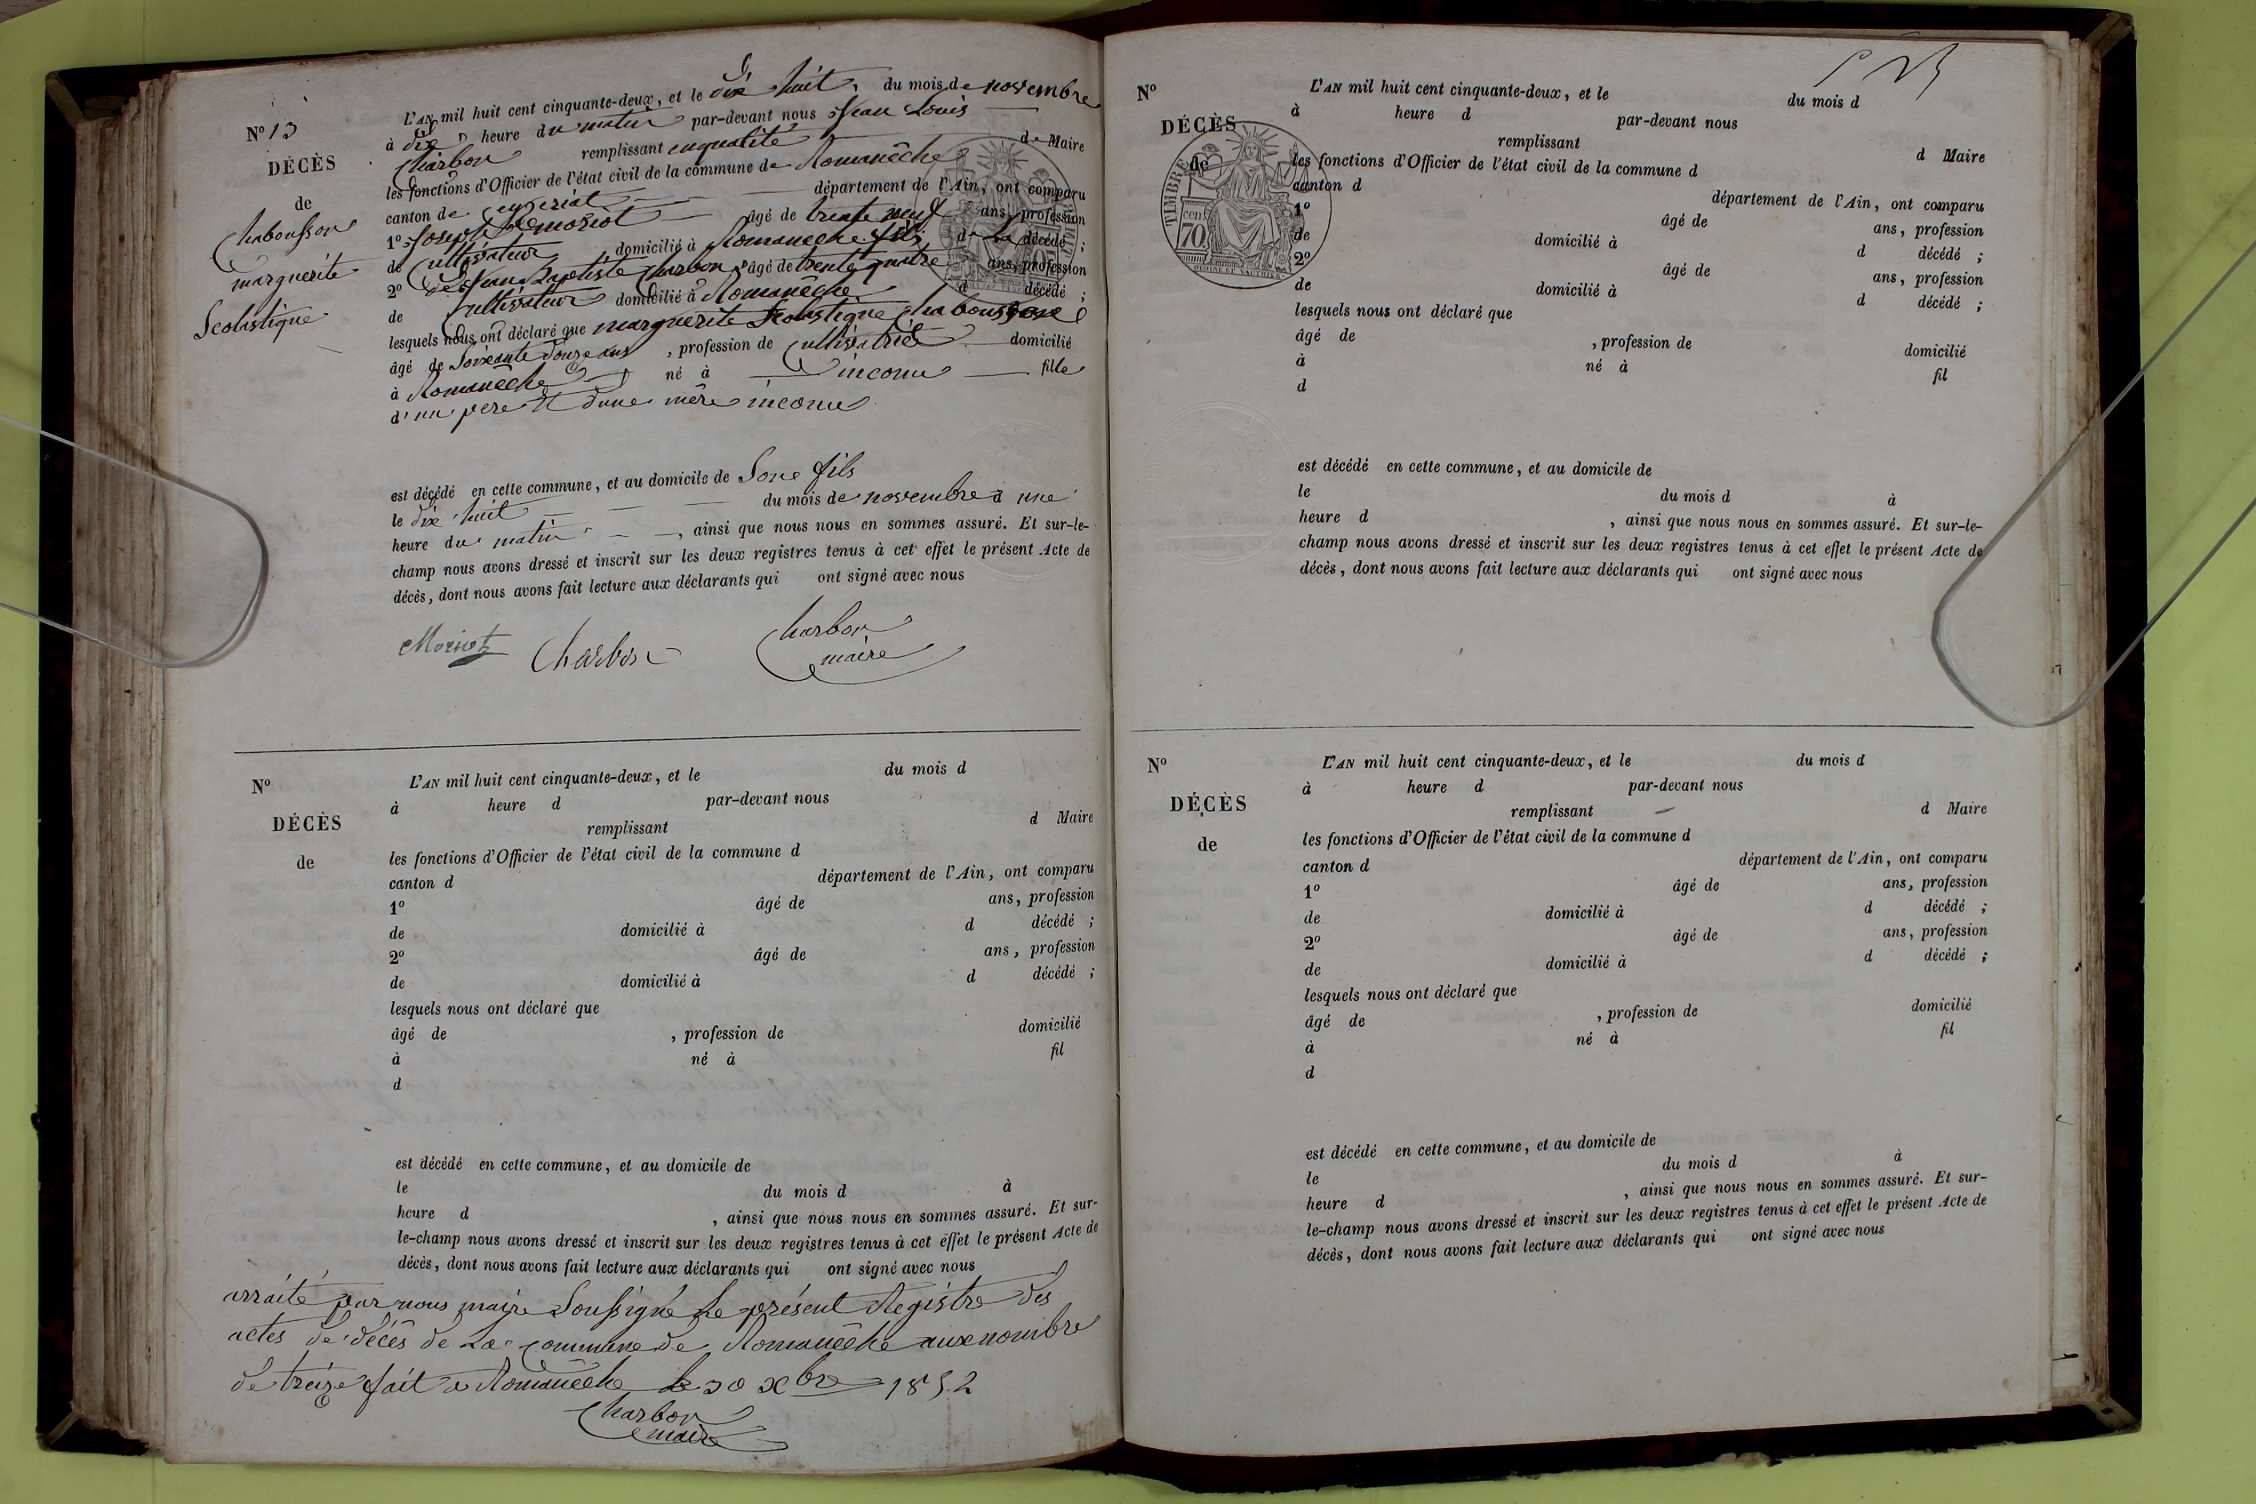 N° 13
DÉCÈS
de
Chabousson
marguerite
Scolastique
L'AN mil huit cent cinquante-deux, et le dix huit, du mois de novembre
à dix heure du matin par-devant nous Jean Louis
Charbon remplissant enqualité de Maire
les fonctions d'Officier de l'état civil de la commune de Romanêche
canton de ceyzeriat département de l'Ain, ont comparu
1° Joseph moriot âgé de trente neuf ans, profession
de Cultivateur, domicilié à Romanêche fils de La décédé ;
2° Jean Baptiste Charbon âgé de trente quatre ans, profession
de Cultivateur domicilié à Romanêche d décédé ;
lesquels nous ont déclaré que marguerite Scolastique Chabousson
âgé de Soixante douze ans, profession de Cultivatrice domicilié
à Romanêche né à inconu fille
d'un pere et dune mère inconu
est décédé en cette commune, et au domicile de Sone fils
le dix huit du mois de novembre à une
heure du matin, ainsi que nous nous en sommes assuré. Et sur-le-
champ nous avons dressé et inscrit sur les deux registres tenus à cet effet le présent Acte de
décès, dont nous avons fait lecture aux déclarants qui ont signé avec nous
Moriot Charbon Charbon
maire
N°
DÉCÈS
de
L'AN mil huit cent cinquante-deux, et le du mois d
à heure d par-devant nous
remplissant d Maire
les fonctions d'Officier de l'état civil de la commune d
canton d département de l'Ain, ont comparu
1° âgé de ans, profession
de domicilié à d décédé ;
2° âgé de ans, profession
de domicilié à d décédé ;
lesquels nous ont déclaré que
âgé de , profession de domicilié
à né à fil
d
est décédé en cette commune, et au domicile de
le du mois d à
heure d , ainsi que nous nous en sommes assuré. Et sur-
le-champ nous avons dressé et inscrit sur les deux registres tenus à cet effet le présent Acte de
décès, dont nous avons fait lecture aux déclarants qui ont signé avec nous
arraité par nous maire Soussigné Le présent Registre des
actes de décès de La Commune de Romanêche aux nombre
de treize fait a Romanêche le 30 xbre 1852
Charbon
maire
N°
DÉCÈS
de
TIMBRE
70 cen
L'AN mil huit cent cinquante-deux, et le du mois d
à heure d par-devant nous
remplissant d Maire
les fonctions d'Officier de l'état civil de la commune d
canton d département de l'Ain, ont comparu
1° âgé de ans, profession
de domicilié à d décédé ;
2° âgé de ans, profession
de domicilié à d décédé ;
lesquels nous ont déclaré que
âgé de , profession de domicilié
à né à fil
d
est décédé en cette commune, et au domicile de
le du mois d à
heure d , ainsi que nous nous en sommes assuré. Et sur-le-
champ nous avons dressé et inscrit sur les deux registres tenus à cet effet le présent Acte de
décès, dont nous avons fait lecture aux déclarants qui ont signé avec nous
N°
DÉCÈS
de
L'AN mil huit cent cinquante-deux, et le du mois d
à heure d par-devant nous
remplissant d Maire
les fonctions d'Officier de l'état civil de la commune d
canton d département de l'Ain, ont comparu
1° âgé de ans, profession
de domicilié à d décédé ;
2° âgé de ans, profession
de domicilié à d décédé ;
lesquels nous ont déclaré que
âgé de , profession de domicilié
à né à fil
d
est décédé en cette commune, et au domicile de
le du mois d à
heure d , ainsi que nous nous en sommes assuré. Et sur-
le-champ nous avons dressé et inscrit sur les deux registres tenus à cet effet le présent Acte de
décès, dont nous avons fait lecture aux déclarants qui ont signé avec nous